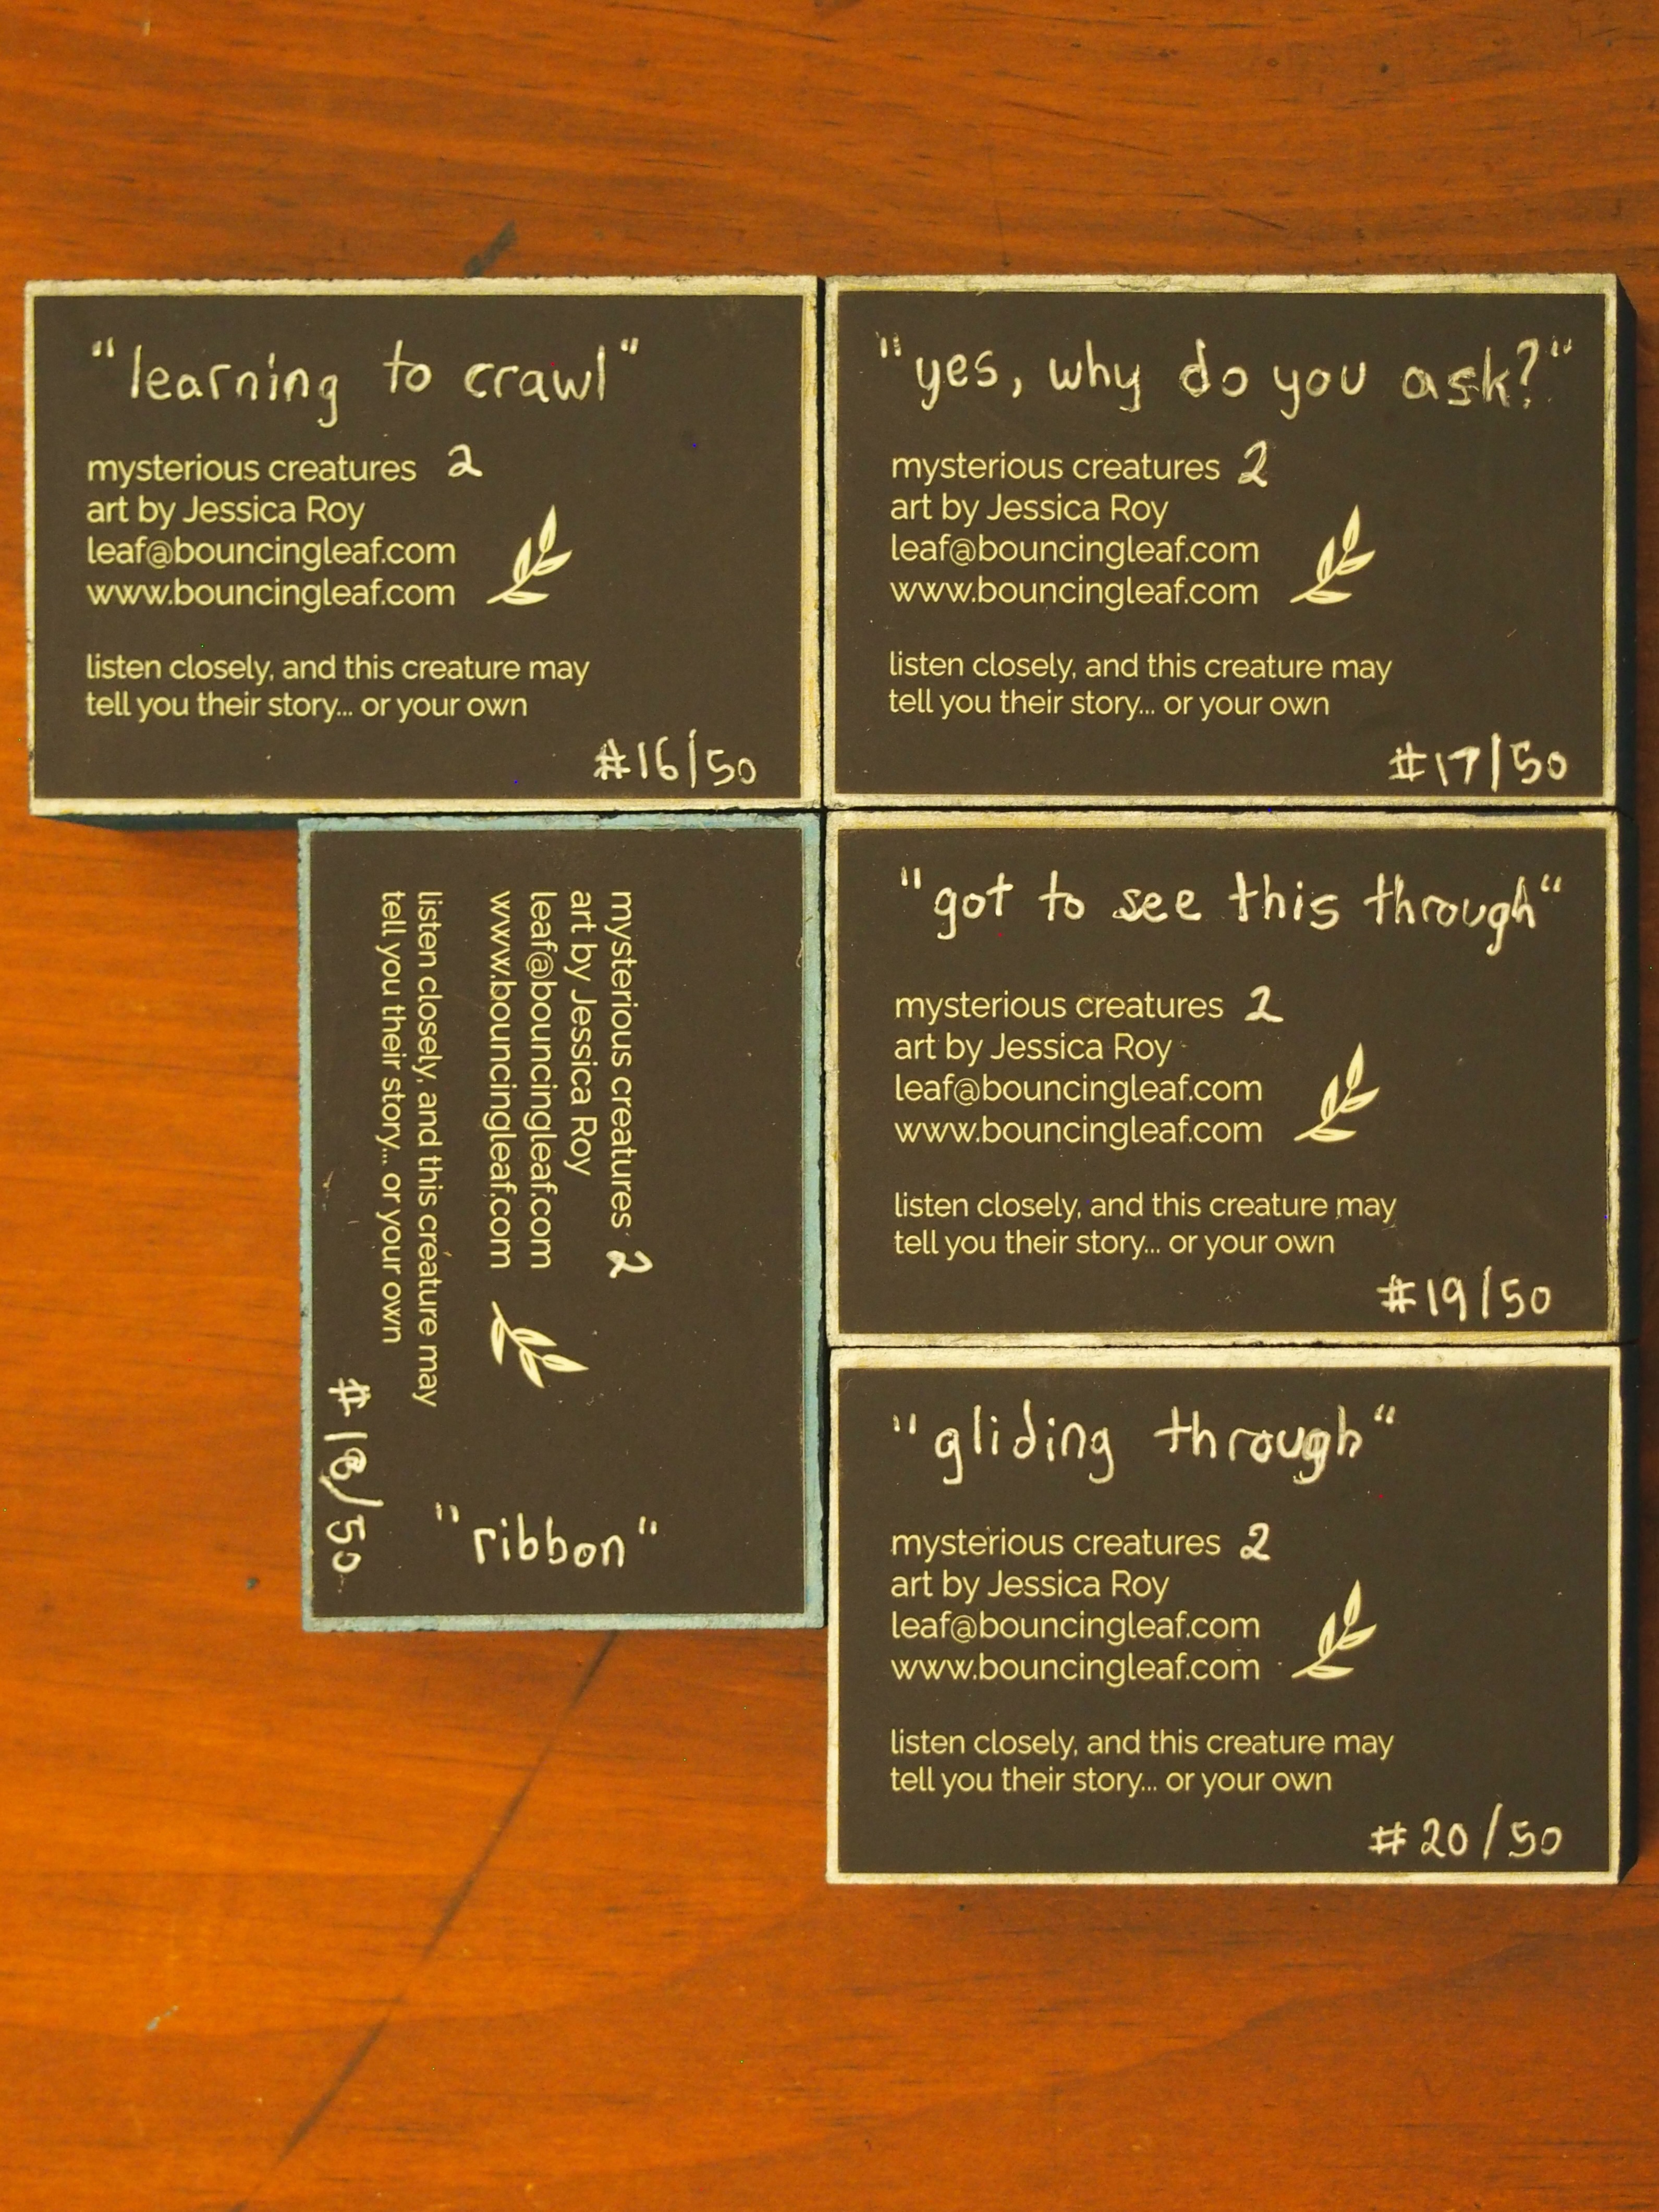 "learning to crawl"
mysterious creatures 2
art by Jessica Roy
leaf@bouncingleaf.com
www.bouncingleaf.com
listen closely, and this creature may
tell you their story... or your own
#16/50
"yes, why do you ask?"
mysterious creatures 2
art by Jessica Roy
leaf@bouncingleaf.com
www.bouncingleaf.com
listen closely, and this creature may
tell you their story... or your own
#17/50
mysterious creatures 2
art by Jessica Roy
leaf@bouncingleaf.com
www.bouncingleaf.com
listen closely, and this creature may
tell you their story... or your own
#18/50
"ribbon"
"got to see this through"
mysterious creatures 2
art by Jessica Roy
leaf@bouncingleaf.com
www.bouncingleaf.com
listen closely, and this creature may
tell you their story... or your own
#19/50
"gliding through"
mysterious creatures 2
art by Jessica Roy
leaf@bouncingleaf.com
www.bouncingleaf.com
listen closely, and this creature may
tell you their story... or your own
#20/50